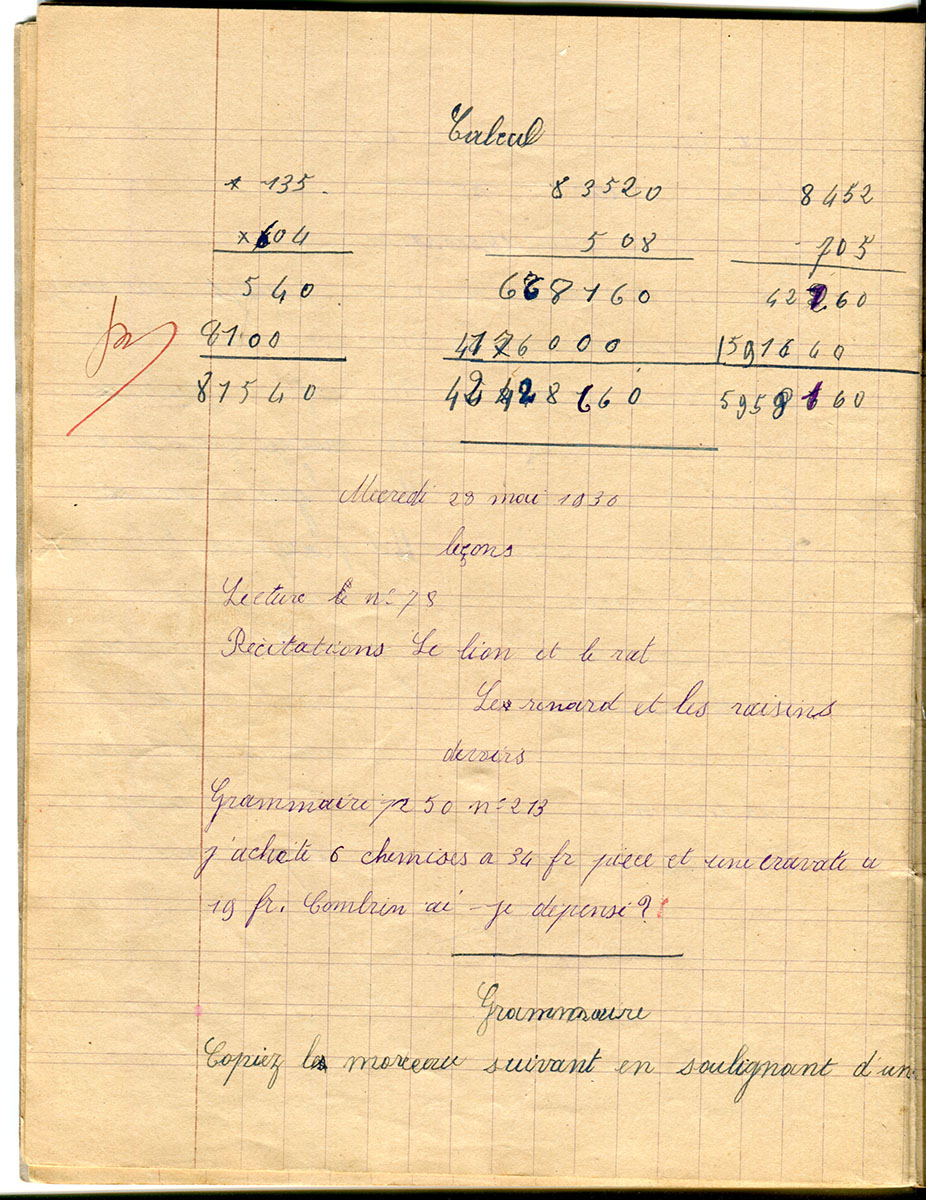 Calcul
135. 83520 8452
×604 508 705
540 668160 42260
8100 4176000 591640
81540 42428160 5958660
Mecredi 28 mai 1930
leçons
Lecture le n° 78
Récitations Le lion et le rat
Le renard et les raisins
devoirs
Grammaire p 50 n° 213
j'achete 6 chemises a 34 fr piece et une cravate a
19 fr. Combien ai-je depensé?
Grammaire
Copiez le morceau suivant en soulignant d'un